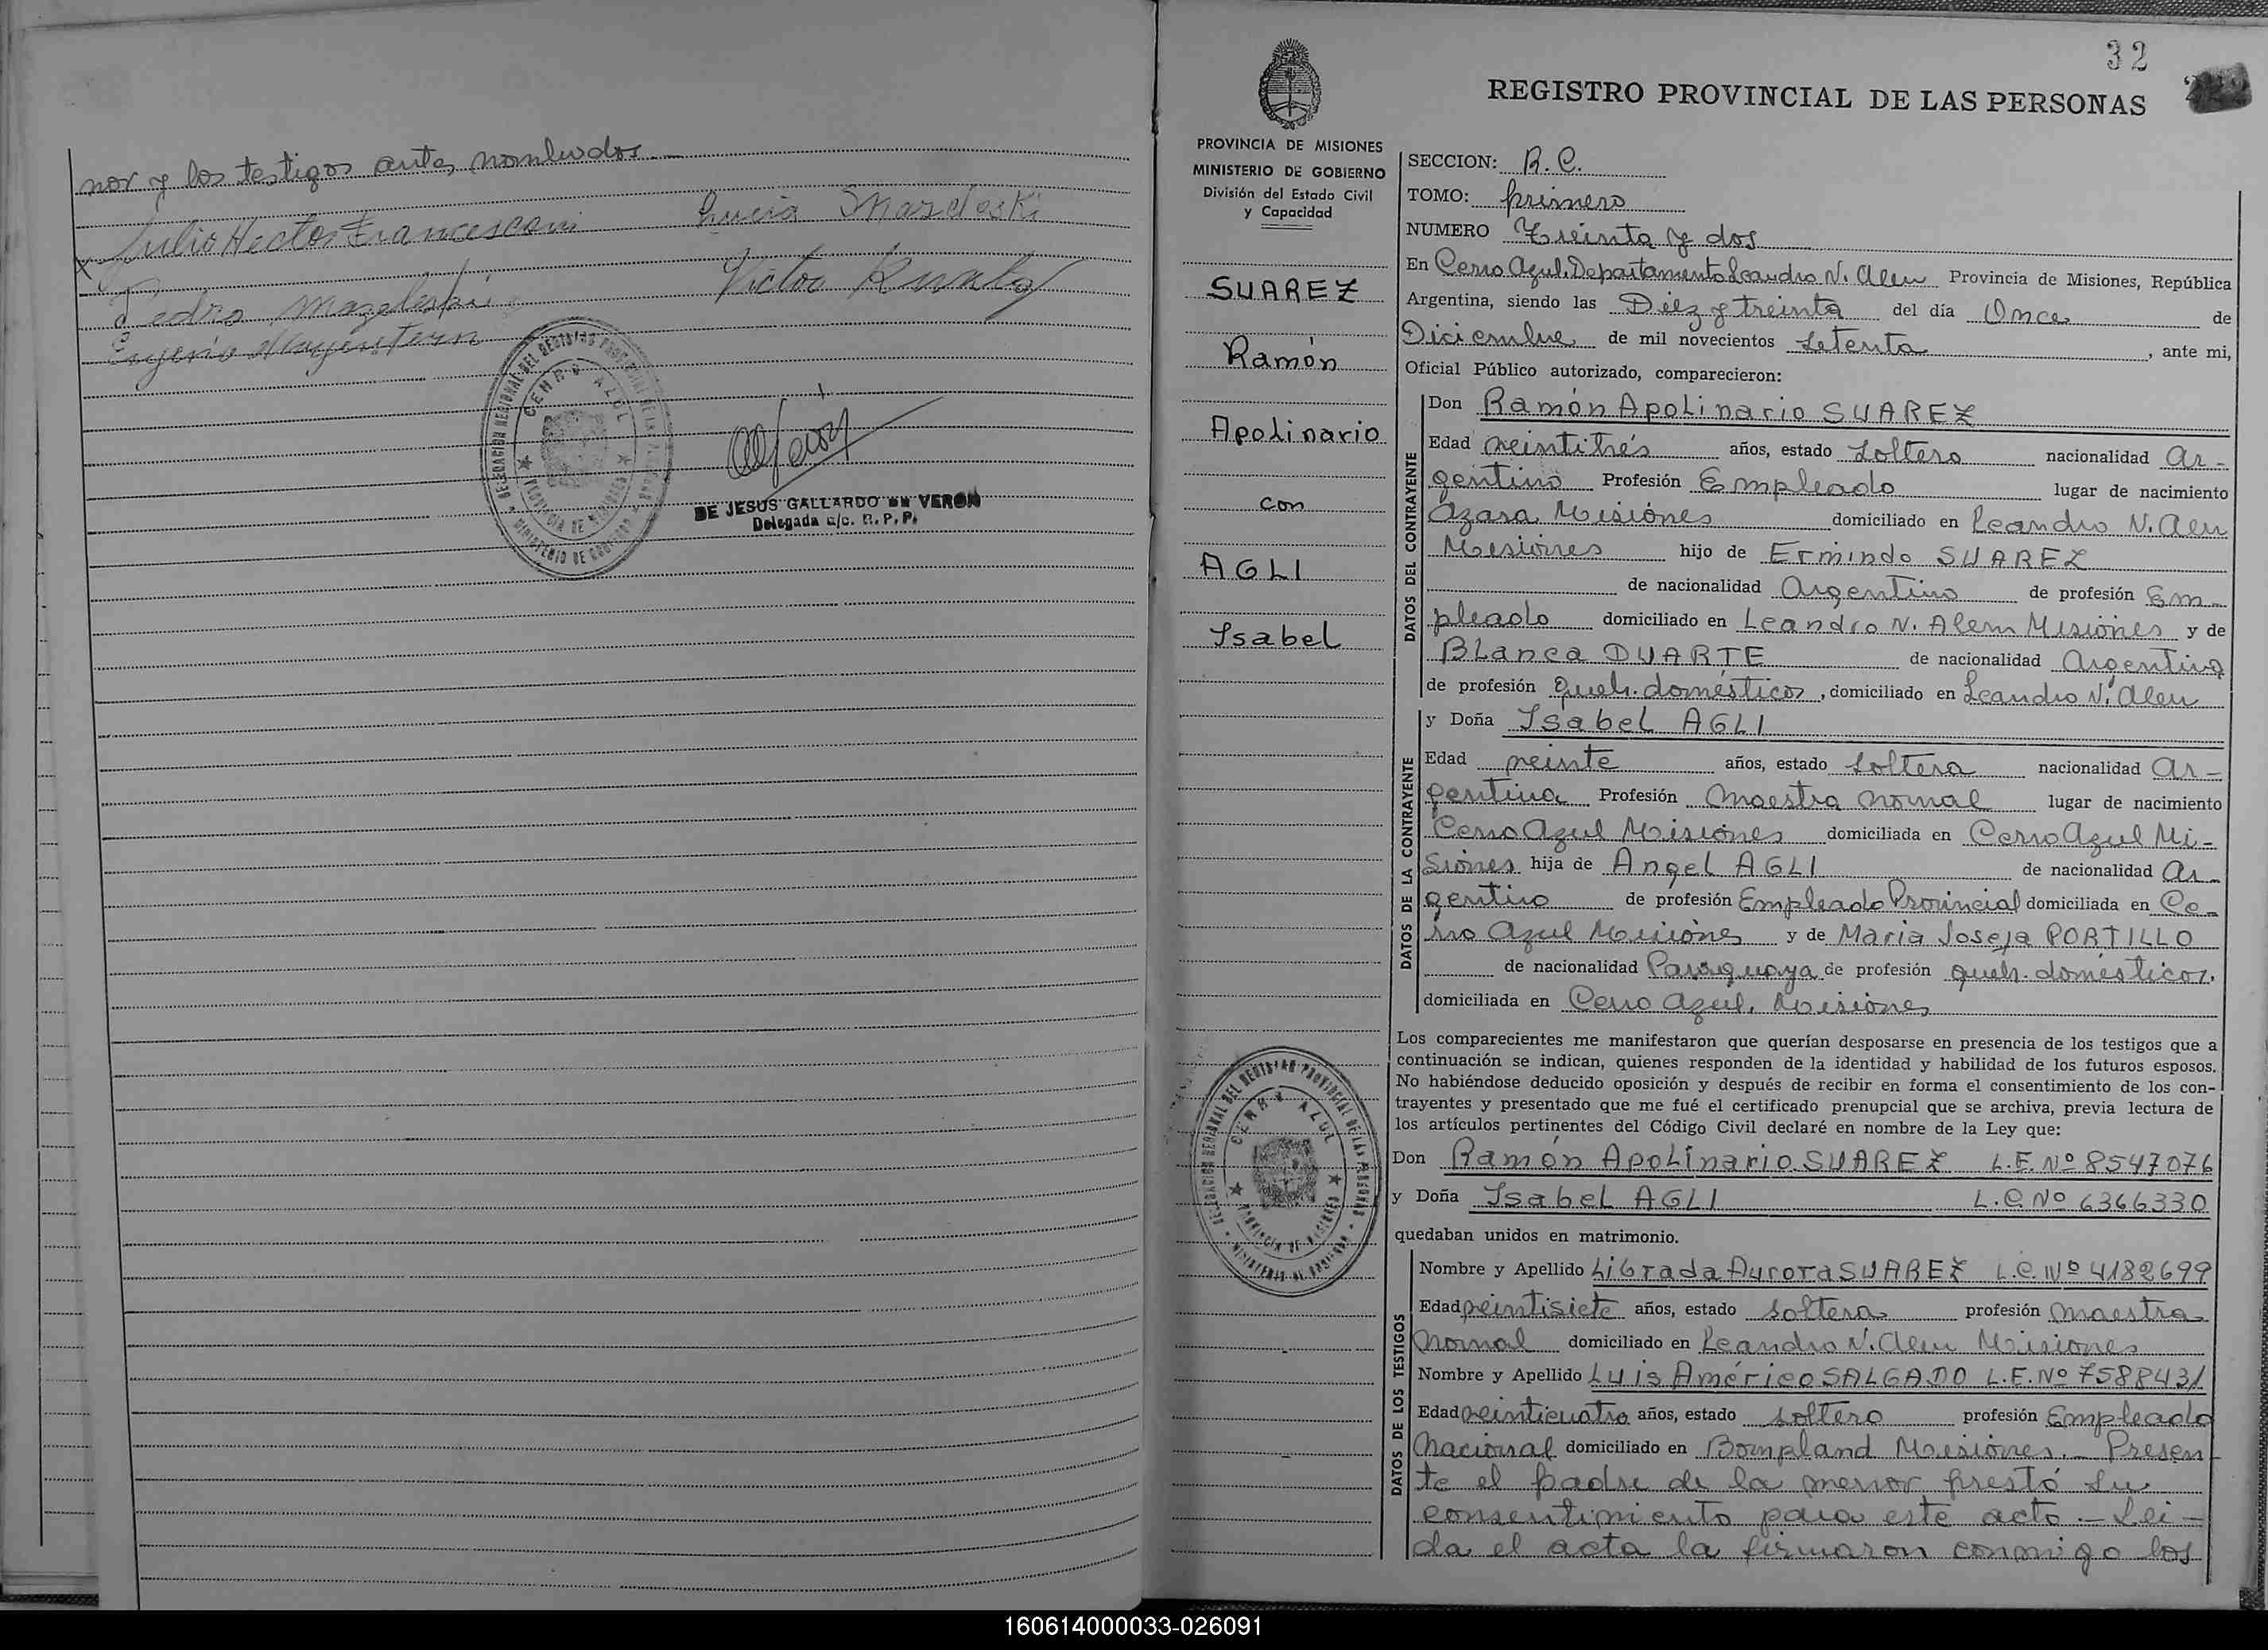 nor y los testigos antes nombrados.—
Julio Hector Francescani
Lucia
Pedro
Victor
Eugenio
DELEGACION REGIONAL DEL REGISTRO PROVINCIAL DE LAS PERSONAS
CERRO AZUL
PROVINCIA DE MISIONES
MINISTERIO DE GOBIERNO
DE JESUS GALLARDO DE VERON
Delegada a/c. R.P.P.
32
REGISTRO PROVINCIAL DE LAS PERSONAS
PROVINCIA DE MISIONES
MINISTERIO DE GOBIERNO
División del Estado Civil
y Capacidad
SUAREZ
Ramón
Apolinario
con
AGLI
Isabel
DELEGACION REGIONAL DEL REGISTRO PROVINCIAL DE LAS PERSONAS
CERRO AZUL
PROVINCIA DE MISIONES
MINISTERIO DE GOBIERNO
SECCION: R.C.
TOMO: primero
NUMERO Treinta y dos
En Cerro Azul, Departamento Leandro N. Alem Provincia de Misiones, República
Argentina, siendo las Diez y treinta del día Once de
Diciembre de mil novecientos setenta, ante mi,
Oficial Público autorizado, comparecieron:
DATOS DEL CONTRAYENTE
Don Ramón Apolinario SUAREZ
Edad veintitrés años, estado soltero nacionalidad Ar-
gentino Profesión Empleado lugar de nacimiento
Azara Misiones domiciliado en Leandro N. Alem
Misiones hijo de Ermindo SUAREZ
de nacionalidad Argentino de profesión Em-
pleado domiciliado en Leandro N. Alem Misiones y de
Blanca DUARTE de nacionalidad Argentina
de profesión queh. domésticos, domiciliado en Leandro N. Alem
DATOS DE LA CONTRAYENTE
y Doña Isabel AGLI
Edad veinte años, estado soltera nacionalidad Ar-
gentina Profesión Maestra Normal lugar de nacimiento
Cerro Azul Misiones domiciliada en Cerro Azul Mi-
siones hija de Angel AGLI de nacionalidad Ar-
gentino de profesión Empleado Provincial domiciliada en Ce-
rro Azul Misiones y de Maria Josefa PORTILLO
de nacionalidad Paraguaya de profesión queh. domésticos,
domiciliada en Cerro Azul, Misiones
Los comparecientes me manifestaron que querían desposarse en presencia de los testigos que a
continuación se indican, quienes responden de la identidad y habilidad de los futuros esposos.
No habiéndose deducido oposición y después de recibir en forma el consentimiento de los con-
trayentes y presentado que me fué el certificado prenupcial que se archiva, previa lectura de
los artículos pertinentes del Código Civil declaré en nombre de la Ley que:
Don Ramón Apolinario SUAREZ L.E. Nº 8547076
y Doña Isabel AGLI L.C. Nº 6366330
quedaban unidos en matrimonio.
DATOS DE LOS TESTIGOS
Nombre y Apellido Librada Aurora SUAREZ L.C. Nº 4182699
Edad veintisiete años, estado soltera profesión Maestra
Normal domiciliado en Leandro N. Alem Misiones
Nombre y Apellido Luis Américo SALGADO L.E. Nº 7588431
Edad veinticuatro años, estado soltero profesión Empleado
Nacional domiciliado en Bompland Misiones.— Presen
te el padre de la menor prestó su
consentimiento para este acto.— Lei-
da el acta la firmaron conmigo los
160614000033-026091